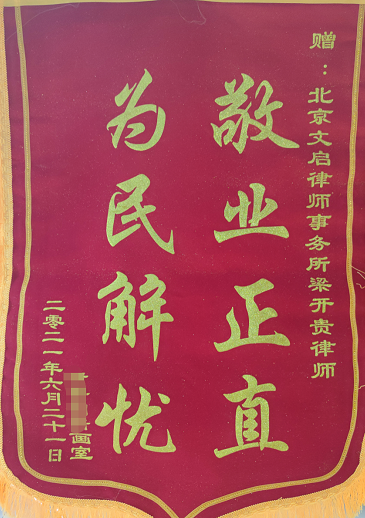 赠：北京文启律师事务所梁开贵律师
敬业正直
为民解忧
画室
二零二一年六月二十一日